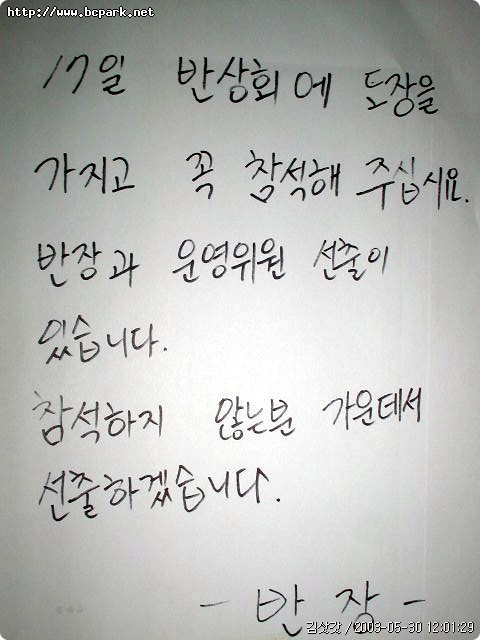 http://www.bcpark.net
17일 반상회에 도장을
가지고 꼭 참석해 주십시요.
반장과 운영위원 선출이
있습니다.
참석하지 않는분 가운데서
선출하겠습니다.
- 반 장 -
/2003-05-30 12:01:29